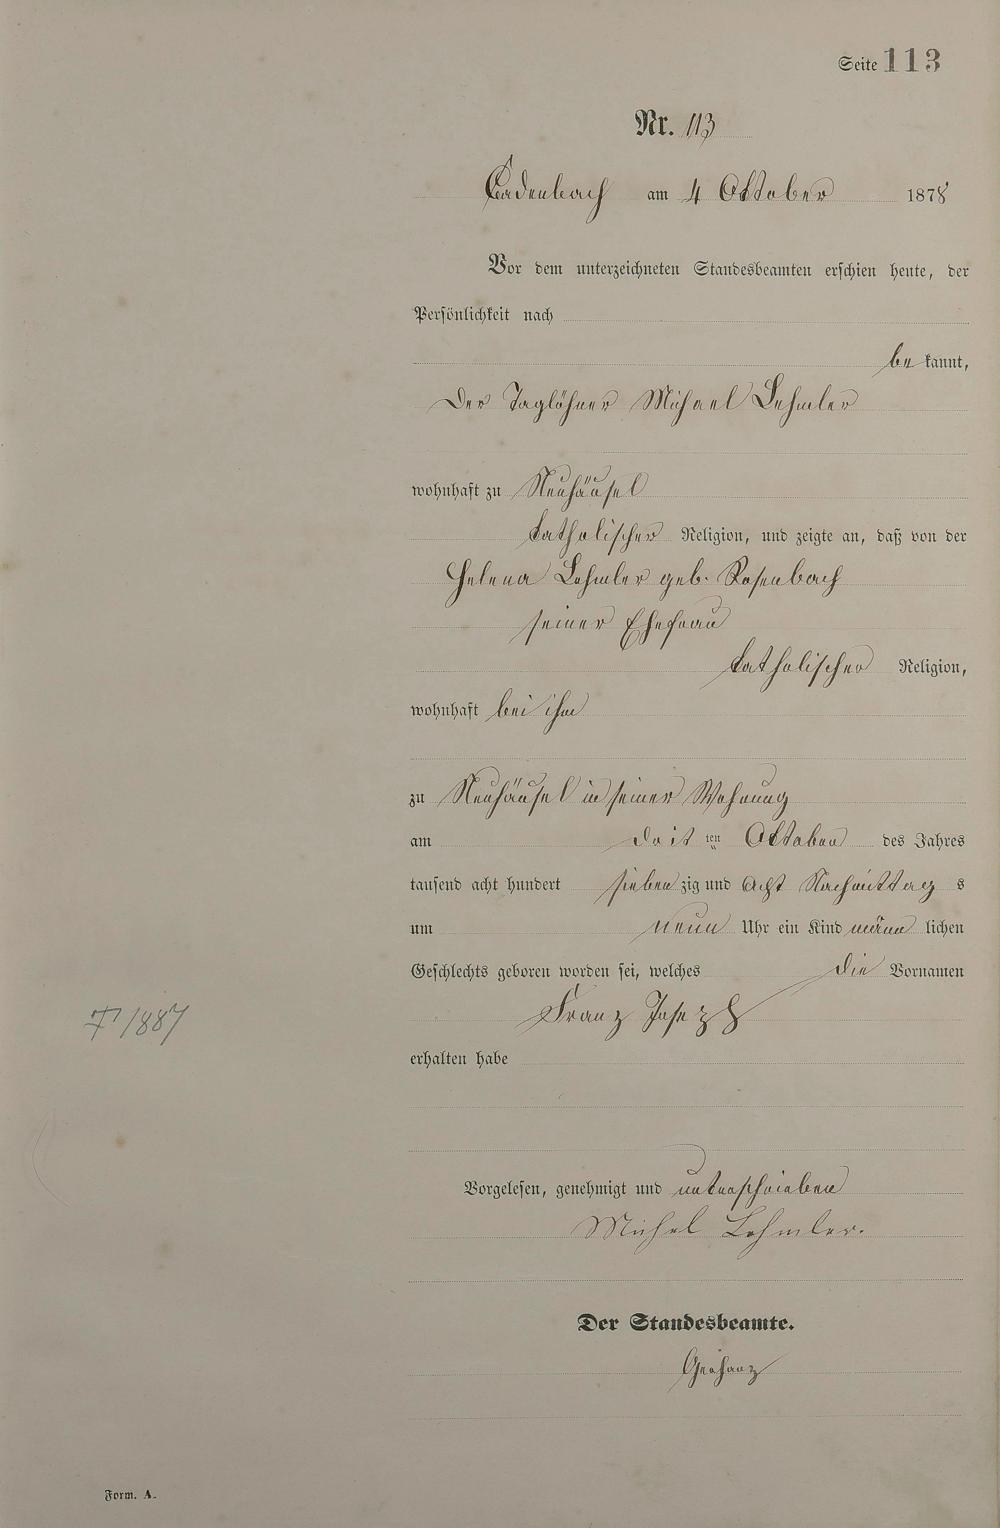 Seite 113
Nr. 113
Cadenbach am 4 Oktober 1878
Vor dem unterzeichneten Standesbeamten erschien heute, der
Persönlichkeit nach
be kannt,
Der Taglöhner Michael Lehmler
wohnhaft zu Neuhäusel
katholischer Religion, und zeigte an, daß von der
Helena Lehmler geb. Rosenbach
seiner Ehefrau
katholischer Religion,
wohnhaft bei ihm
zu Neuhäusel in seiner Wohnung
am ten Oktober des Jahres
tausend acht hundert sieben zig und acht Nachmittag s
um neun Uhr ein Kind männ lichen
Geschlechts geboren worden sei, welches die Vornamen
Franz Joseph
† 1887
erhalten habe
Vorgelesen, genehmigt und unterschrieben
Michel Lehmler.
Der Standesbeamte.
Gerharz
Form. A.